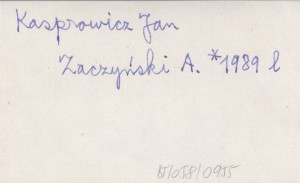 Kasprowicz Jan
Zaczyński A. *1989 l